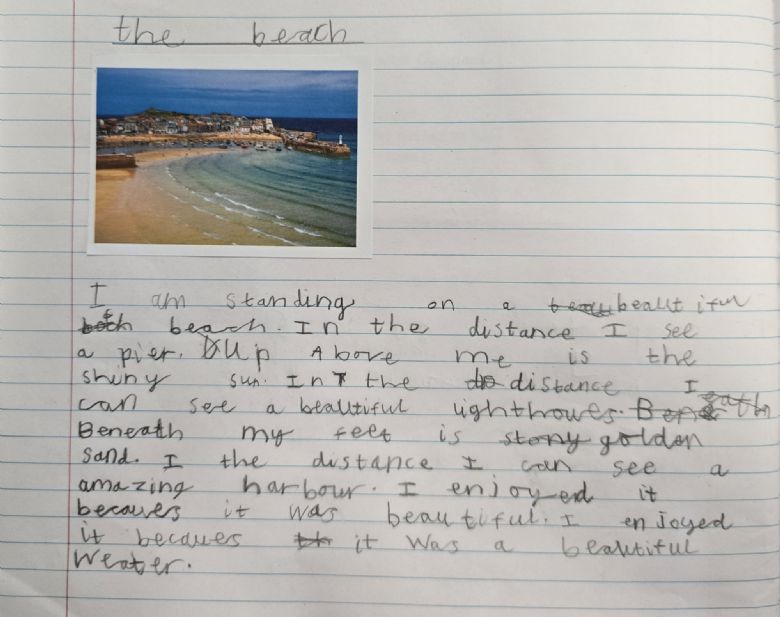 the beach
I am standing on a beautiful
beach. In the distance I see
a pier. Up Above me is the
shiny sun. In the distance I
can see a beautiful lighthowes.
Beneath my feet is stony golden
sand. I the distance I can see a
amazing harbour. I enjoyed it
becaues it was beautiful. I enjoyed
it becaues it was a beautiful
weater.